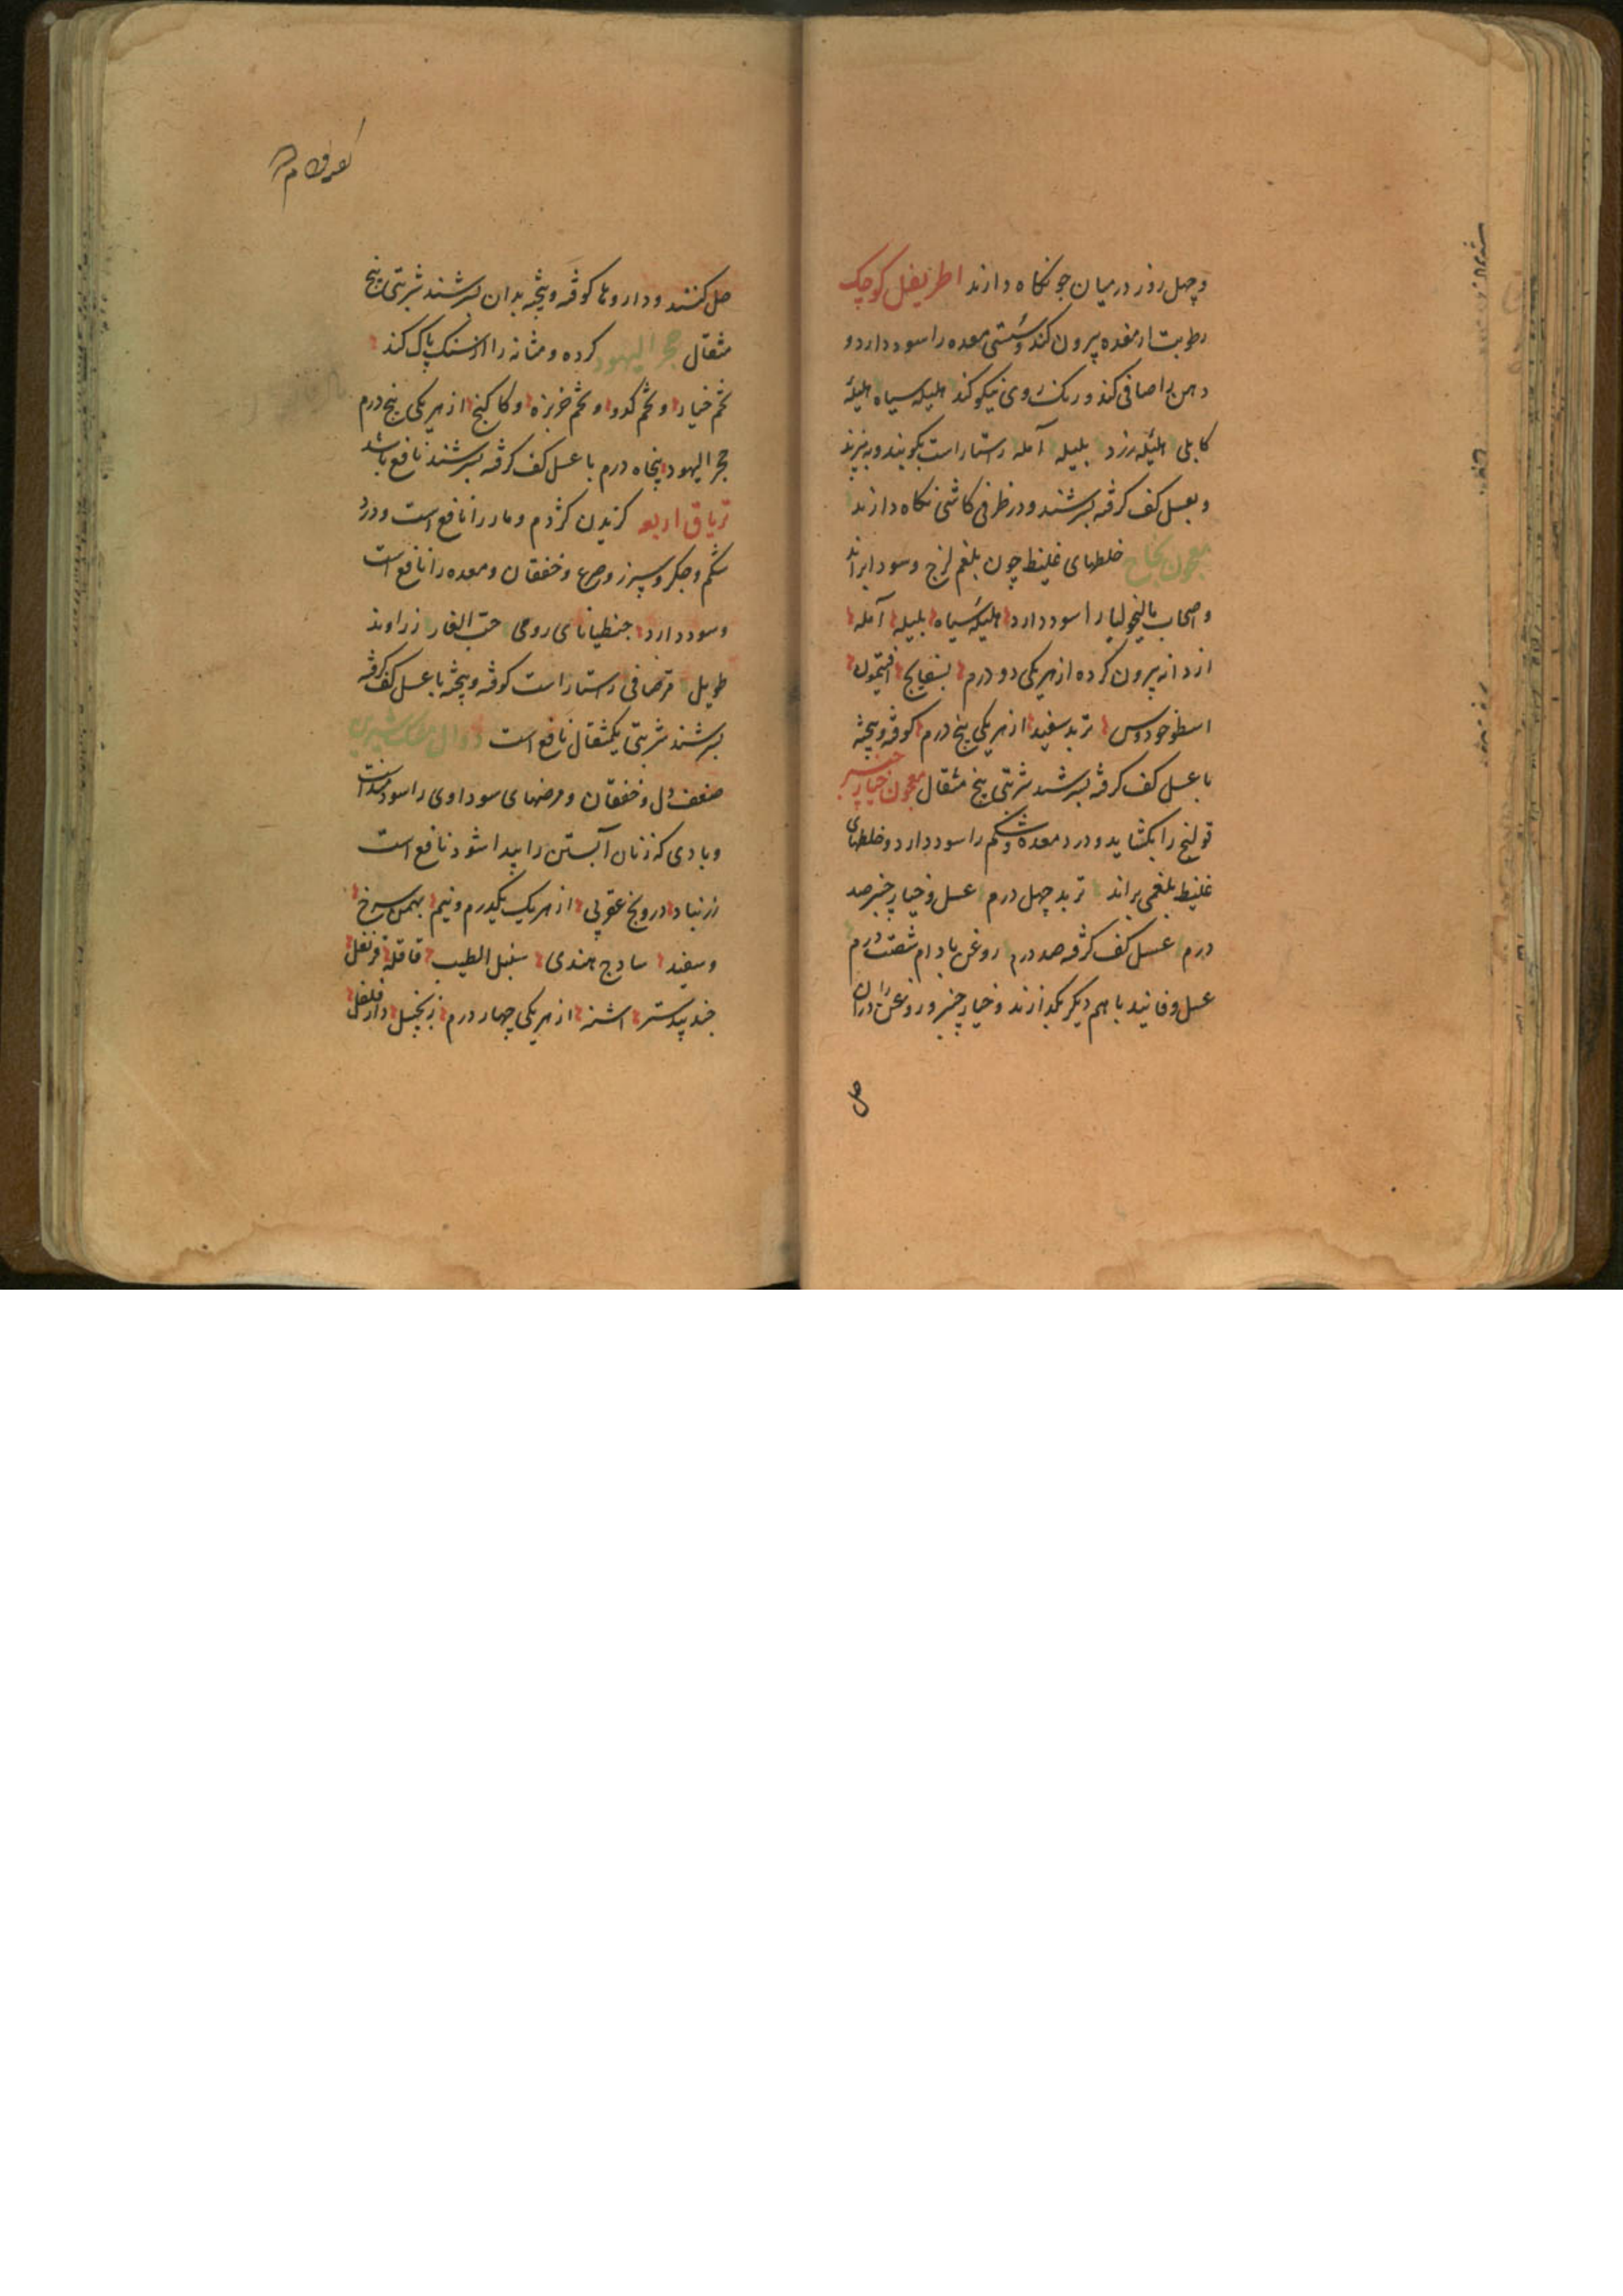 و چهل روز در میان جو نکاه دارند اطریفل کوچک
رطوبت از معده بیرون کند و سستی معده را سود دارد و
دهن را صافی کند و رنک روی نیکو کند هلیله سیاه هلیله
کابلی هلیله زرد بلیله آمله راستاراست بکوبند و بپزند
و بعسل کف کرفته بسرشند و در ظرفی کاشی نکاه دارند
معجون نجاح خلطهای غلیظ چون بلغم لزج و سودا براند
و اصحاب مالیخولیا را سود دارد هلیله سیاه بلیله آمله
از دانه بیرون کرده از هر یکی دو درم بسفایج افتیمون
اسطوخودوس تربد سفید از هر یکی پنج درم کوفته و پیخته
با عسل کف کرفته بسرشند شربتی پنج مثقال معجون خیارچنبر
قولنج را بکشاید و درد معده و شکم را سود دارد و خلطهای
غلیظ بلغمی براند تربد چهل درم عسل و خیارچنبر صد
درم عسل کف کرفته صد درم روغن بادام شصت درم
عسل و فانید با هم دیکر بکدازند و خیارچنبر و روغن را در آن
حل
حل کنند و داروها کوفته و پیخته بدان بسرشند شربتی پنج
مثقال حجر الیهود کرده و مثانه را از سنک پاک کند
تخم خیار و تخم کدو و تخم خربزه و کاکنج از هر یکی پنج درم
حجر الیهود پنجاه درم با عسل کف کرفته بسرشند نافع باشد
تریاق اربعه کزیدن کژدم و مار را نافع است و درد
شکم و جکر و سپرز و صرع و خفقان و معده را نافع است
و سود دارد جنطیانای رومی حب الغار زراوند
طویل مر صافی راستاراست کوفته و پیخته با عسل کف کرفته
بسرشند شربتی یکمثقال نافع است دوالمسک شیرین
ضعف دل و خفقان و مرضهای سوداوی را سودمند است
و بادی که زنان آبستن را پیدا شود نافع است
زرنباد درونج عقربی از هر یک یکدرم و نیم بهمن سرخ
و سفید سادج هندی سنبل الطیب قاقله قرنفل
جندبیدستر اشنه از هر یکی چهار درم زنجبیل دارفلفل